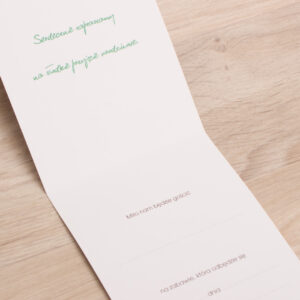 Serdecznie zapraszamy
na
Miło nam będzie gościć
na zabawie, która odbędzie się
dnia